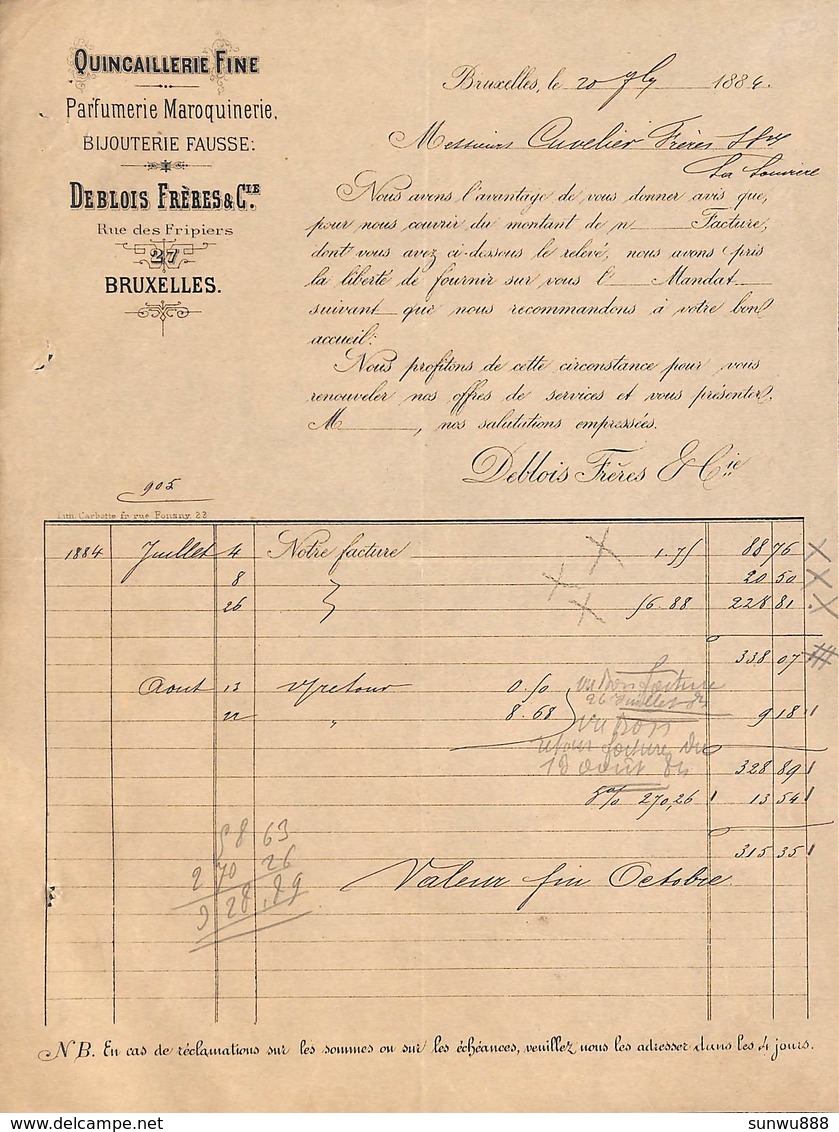 QUINCAILLERIE FINE
Parfumerie Maroquinerie,
BIJOUTERIE FAUSSE:
DEBLOIS FRÈRES & CIE.
Rue des Fripiers
27
BRUXELLES.
Bruxelles, le 20 7bre 1884.
Messieurs Cuvelier Frères
La Louviere
Nous avons l'avantage de vous donner avis que,
pour nous couvrir du montant de n Facture,
dont vous avez ci-dessous le relevé, nous avons pris
la liberté de fournir sur vous l Mandat
suivant que nous recommandons à votre bon
accueil:
Nous profitons de cette circonstance pour vous
renouveler nos offres de services et vous présenter,
M , nos salutations empressées.
Deblois Frères & Cie
905
Lith. Carbotte fr. rue Fonsny, 22
1884 Juillet 4 Notre facture 1.75 88 76
8 20 50
26 56.88 228 81
338 07
Aout 13 v/retour 0.50
22 " 8.68 9 18
vu bon facture
26 Juillet 84
vu bon
retour facture du
18 août 84
328 89
5% 270,26 13 54
315 35
58 63
270 26
328,89
Valeur fin Octobre
NB. En cas de réclamations sur les sommes ou sur les échéances, veuillez nous les adresser dans les 4 jours.
delcampe.net
sunwu888